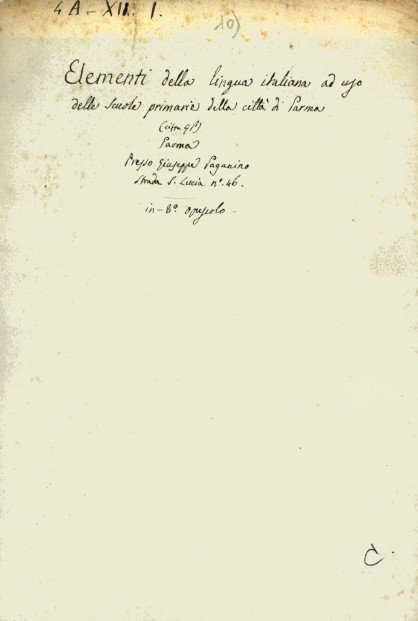 4 A - XII. 1.
10)
Elementi della lingua italiana ad uso
delle scuole primarie della città di Parma
Parma
Presso Giuseppe Paganino
Strada S. Lucia n.° 46.
in-8.° opuscolo.
C.